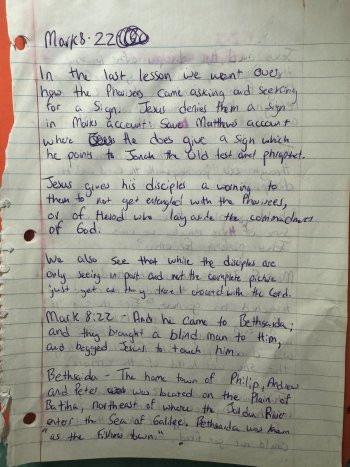 Mark 8:22
In the last lesson we went over,
how the Pharisees came asking and seeking
for a Sign. Jesus denies them a sign
in Marks account. Save Matthws account
where he does give a sign which
he points to Jonah the Old test ant prophet.
Jesus gives his disciples a warning to
them to not get entangled with the Pharisees,
or of Herod who lay aside the commadmens
of God.
We also see that while the disciples are
only seeing in part and not the complete picture
just yet as they travel around with the Lord.
Mark 8:22 - And he came to Bethsaida;
and they brought a blind man to Him,
and begged Jesus to touch him.
Bethsaida - The home town of Philip, Andrew
and Peter was located on the Plain of
Batiha, northeast of where the Jordan River
enter the Sea of Galilee. Bethsaida was known
"as the fishers town."